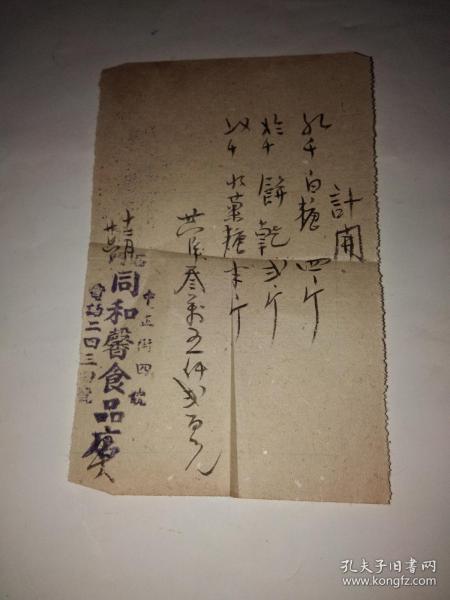 計開
白糖四斤
餅乾弍斤
水菓糖半斤
共洋叁萬五仟弍百元
十二月
中正街四號
同和馨食品店
電話二四三四號
孔夫子旧书网
www.kongfz.com